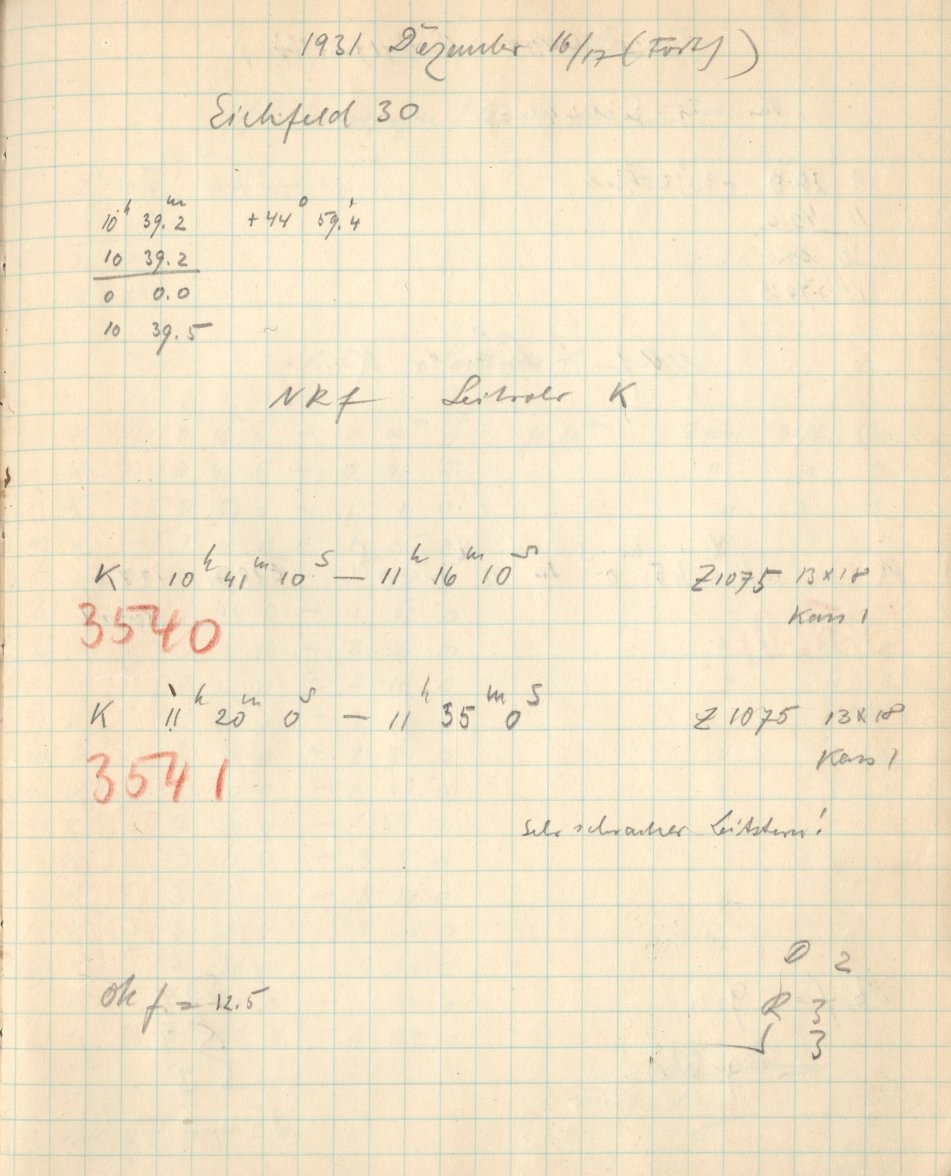 1931 Dezember 16/17 (Forts)
Eichfeld 30
10ʰ 39.2ᵐ +44° 59.'4
10 39.2
0 0.0
10 39.5
NRf Leitrohr K
K 10ʰ 41ᵐ 10ˢ — 11ʰ 16ᵐ 10ˢ Z1075 13x18
3540 Kass 1
K 11ʰ 20ᵐ 0ˢ — 11ʰ 35ᵐ 0ˢ Z 1075 13x18
3541 Kass 1
Sehr schwacher Leitstern!
D 2
Ok f = 12.5 R 3
3